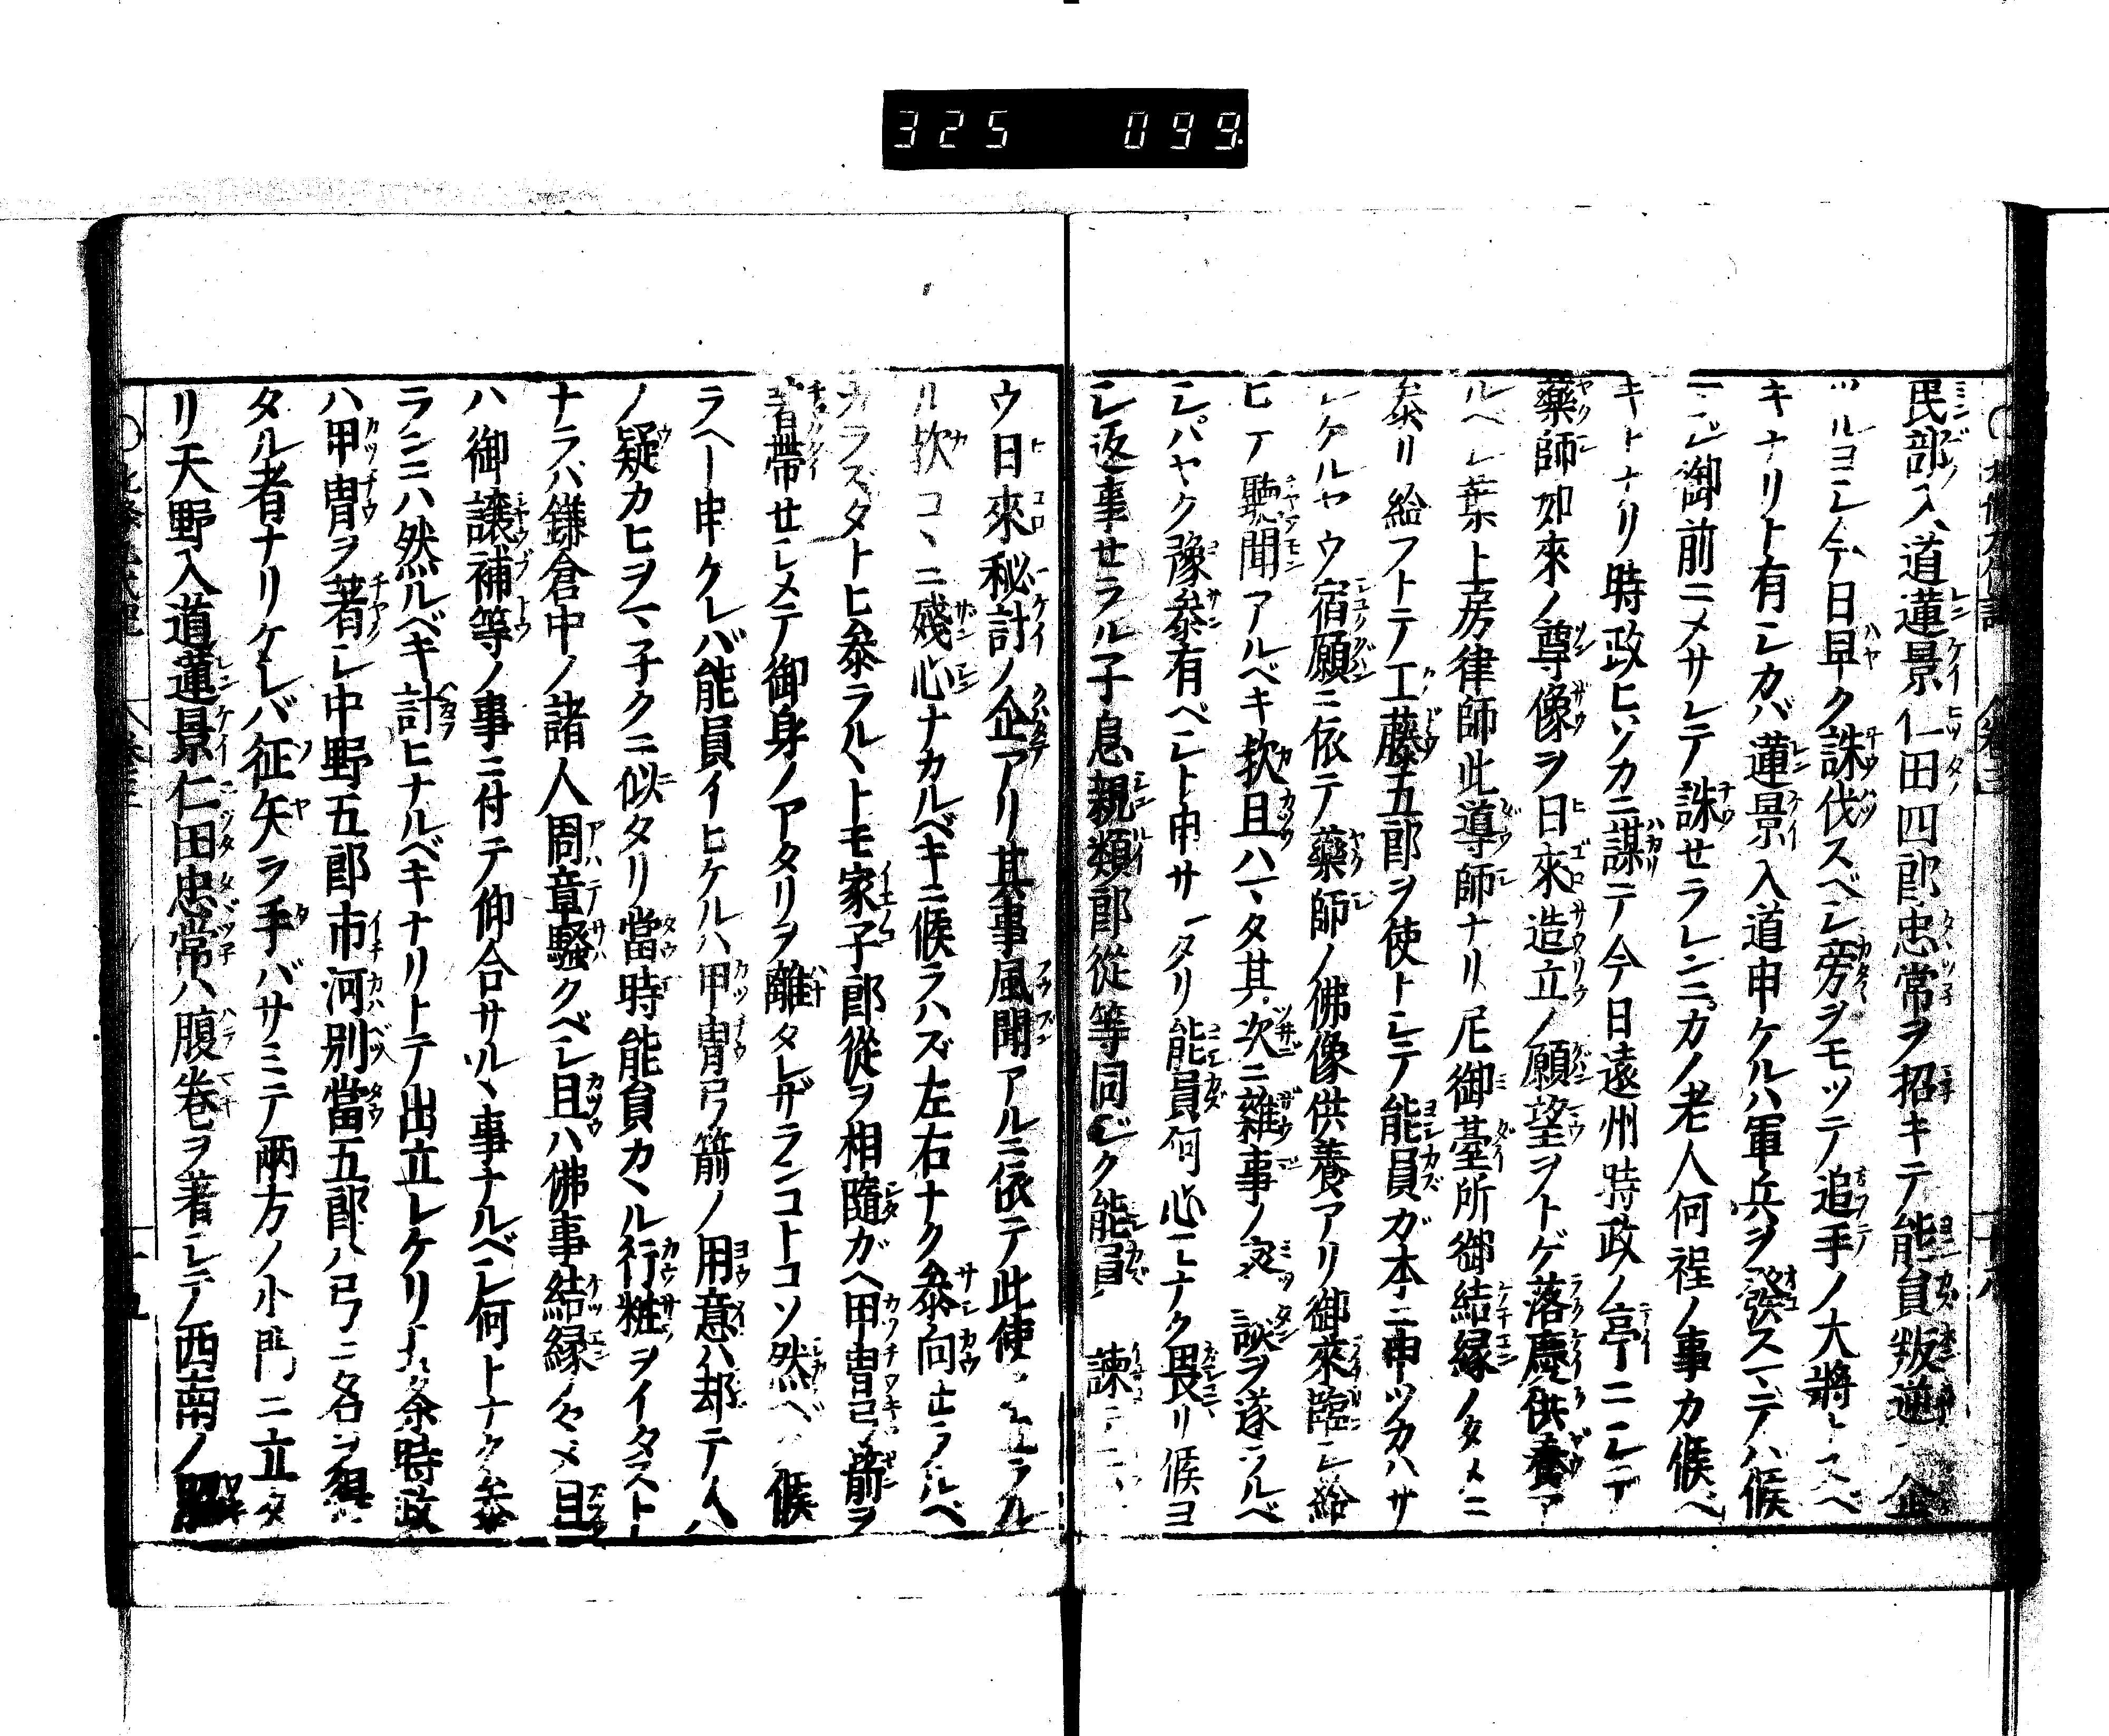 325 099
民部入道蓮景仁田四郎忠常ヲ招キテ能員叛逆 企
ルヨシ今日早ク誅伐スベシ旁ヲモツテ追手ノ大將 ベ
キナリト有シカバ蓮景入道申ケルハ軍兵ヲ發スマデハ候
御前ニメサレテ誅せラレンニカノ老人何程ノ事カ候ベ
キトナリ時政ヒソカニ謀テ今日遠州時政ノ亭ニシテ
藥師如來ノ尊像ヲ日來造立ノ願望ヲトゲ落慶供養ア
ルベシ葉上房律師此導師ナリ尼御臺所御結縁ノタメニ
叅リ給フトテ工藤五郎ヲ使トシテ能員ガ本ニ申ツカハサ
レケルヤウ宿願ニ依テ藥師ノ佛像供養アリ御來臨シ給
ヒテ聽聞アルベキ欤且ハマタ其次ニ雜事ノ 談ヲ遂ラルベ
シハヤク豫叅有ベシト申サ タリ能員何心モナク畏リ候ヨ
シ返事せラル子息親類郎從等同ジク能員 諫
ウ日來秘計ノ企アリ其事風聞アルニ依テ此使 ラル
ル欤コヽニ殘心ナカルベキニ候ラハズ左右ナク叅向セラルベ
カラズタトヒ叅ラルヽトモ家子郎從ヲ相隨ガヘ甲冑弓箭ヲ
著帶せシメテ御身ノアタリヲ離タレザランコトコソ然ベ 候
ラヘト申ケレバ能員イヒケルハ甲冑弓箭ノ用意ハ却テ人
ノ疑カヒヲマ子クニ似タリ當時能員カヽル行粧ヲイタスト
ナラバ鎌倉中ノ諸人周章騷クベシ且ハ佛事結縁ノタメ且
ハ御讓補等ノ事ニ付テ仰合サルヽ事ナルベシ何トナク叅
ランニハ然ルベキ計ヒナルベキナリトテ出立レケリ 時政
ハ甲冑ヲ著シ中野五郎市河別當五郎ハ弓ニ名ヲ得
タル者ナリケレバ征矢ヲ手バサミテ兩方ノ小門ニ立タ
リ天野入道蓮景仁田忠常ハ腹卷ヲ著シテ西南ノ